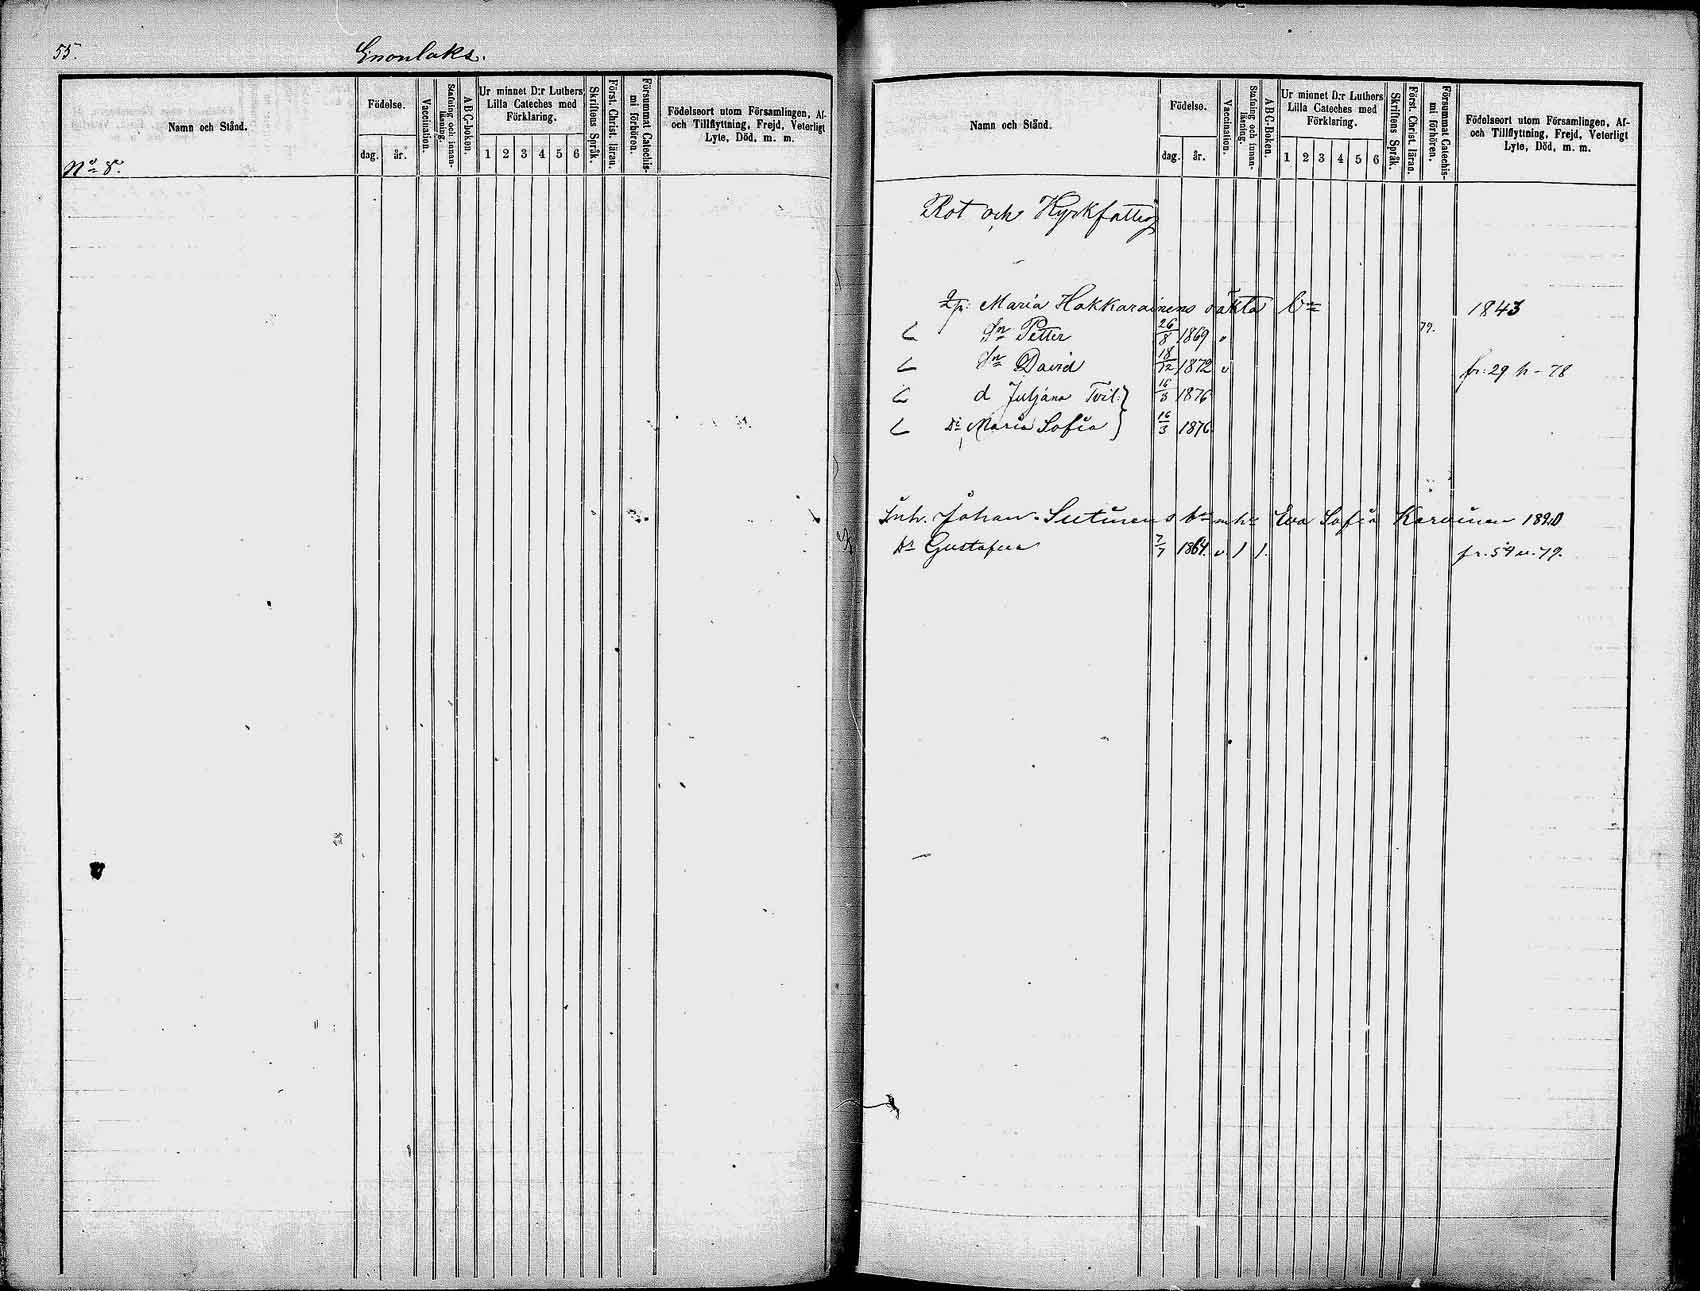 55.
Enonlaks.
Namn och Stånd.
Födelse.
dag.
år.
Vaccination.
Stafning och innanläsning.
ABC-boken.
Ur minnet D:r Luthers
Lilla Cateches med
Förklaring.
1 2 3 4 5 6
Skriftens Språk.
Först. Christ. läran.
Försummat Catechis-
mi förhören.
Födelseort utom Församlingen, Af-
och Tillflyttning, Frejd, Veterligt
Lyte, Död, m. m.
No 8.
Namn och Stånd.
Födelse.
dag.
år.
Vaccination.
Stafning och innanläsning.
ABC-Boken.
Ur minnet D:r Luthers
Lilla Cateches med
Förklaring.
1 2 3 4 5 6
Skriftens Språk.
Först. Christ. läran.
Försummat Catechis-
mi förhören.
Födelseort utom Församlingen, Af-
och Tillflyttning, Frejd, Veterligt
Lyte, Död, m. m.
Rot och Kyrkfattig
Maria Hakkarainens oäkta bn 1843
Sn Petter 26/8 1869 v 79.
Sn David 18/12 1872 v fr: 29 h - 78
d Juliana Tvil: } 16/3 1876
Dr Maria Sofia } 16/3 1876
Inh. Johan Sutinens bn m hu Eva Sofia Karvinen
Dr Gustafva 7/7 1864. v / /. fr. 59 u. 79.